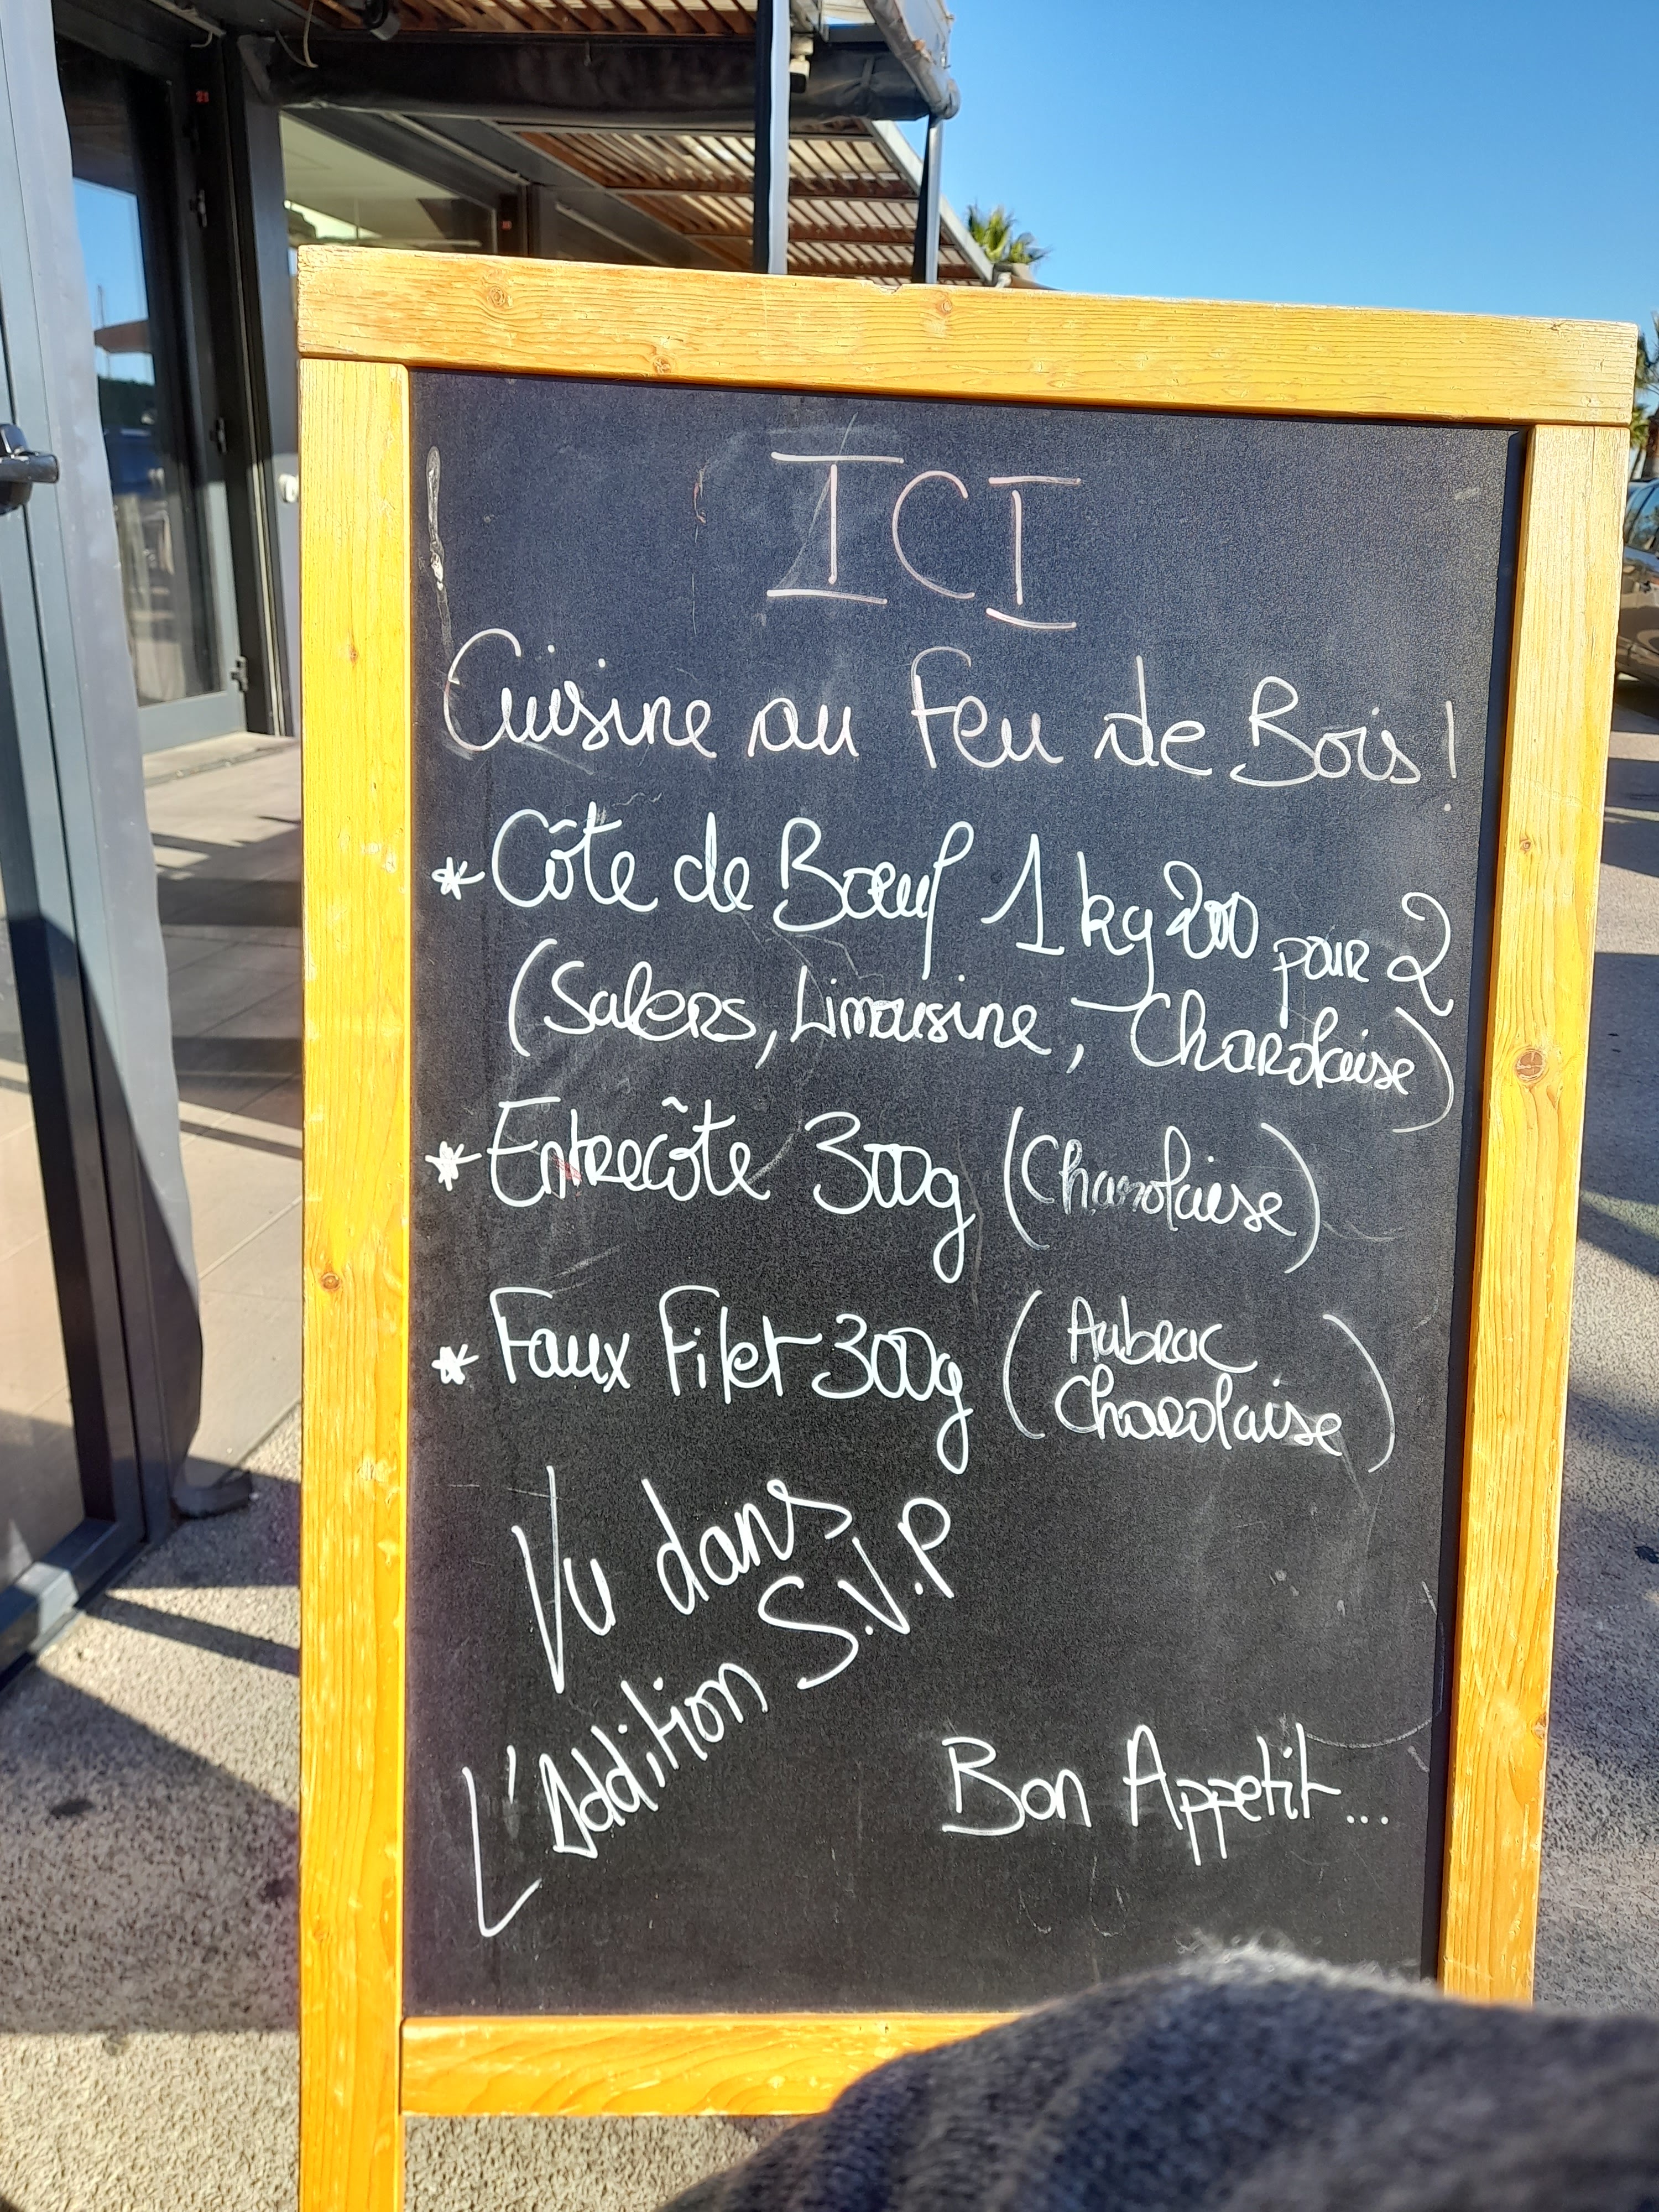 ICI
Cuisine au Feu de Bois!
* Côte de Bœuf 1kg200 pour 2
(Salers, Limousine, Charolaise)
* Entrecôte 300g (Charolaise)
* Faux Filet 300g (Aubrac
Charolaise)
Vu dans
L'Addition S.V.P
Bon Appetit...